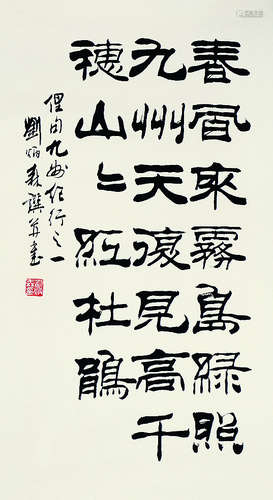 春風來霧島綠照
九州天復見高千
穗山〻紅杜鵑
俚句九州紀行之一
劉炳森撰并書